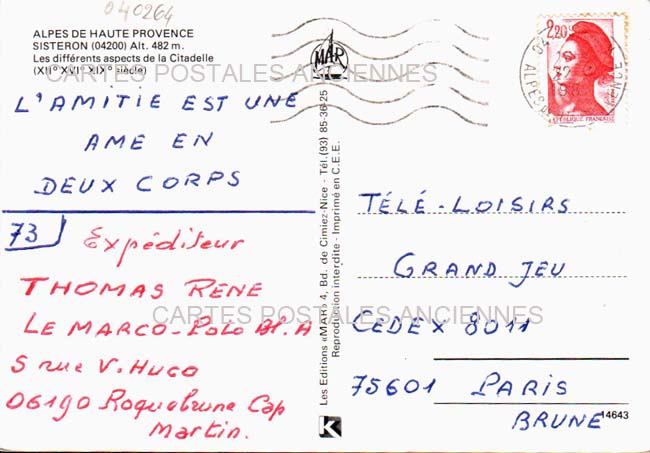 040264
ALPES DE HAUTE PROVENCE
SISTERON (04200) Alt. 482 m.
Les différents aspects de la Citadelle
(XIIº XVIº XIXº siècle)
CARTES POSTALES ANCIENNES
L'AMITIE EST UNE
AME EN
DEUX CORPS
73
Expéditeur
THOMAS RENE
LE MARCO-POLO Bt. A
5 rue V. HUGO
06190 Roquebrune Cap
Martin.
MAR
Les Editions «MAR» 4, Bd. de Cimiez-Nice - Tél. (93) 85-36-25
Reproduction interdite - Imprimé en C.E.E.
K
2,20
RÉPUBLIQUE FRANÇAISE
TÉLÉ-LOISIRS
GRAND JEU
CARTES POSTALES ANCIENNES
CEDEX 8011
75601 PARIS
BRUNE
14643